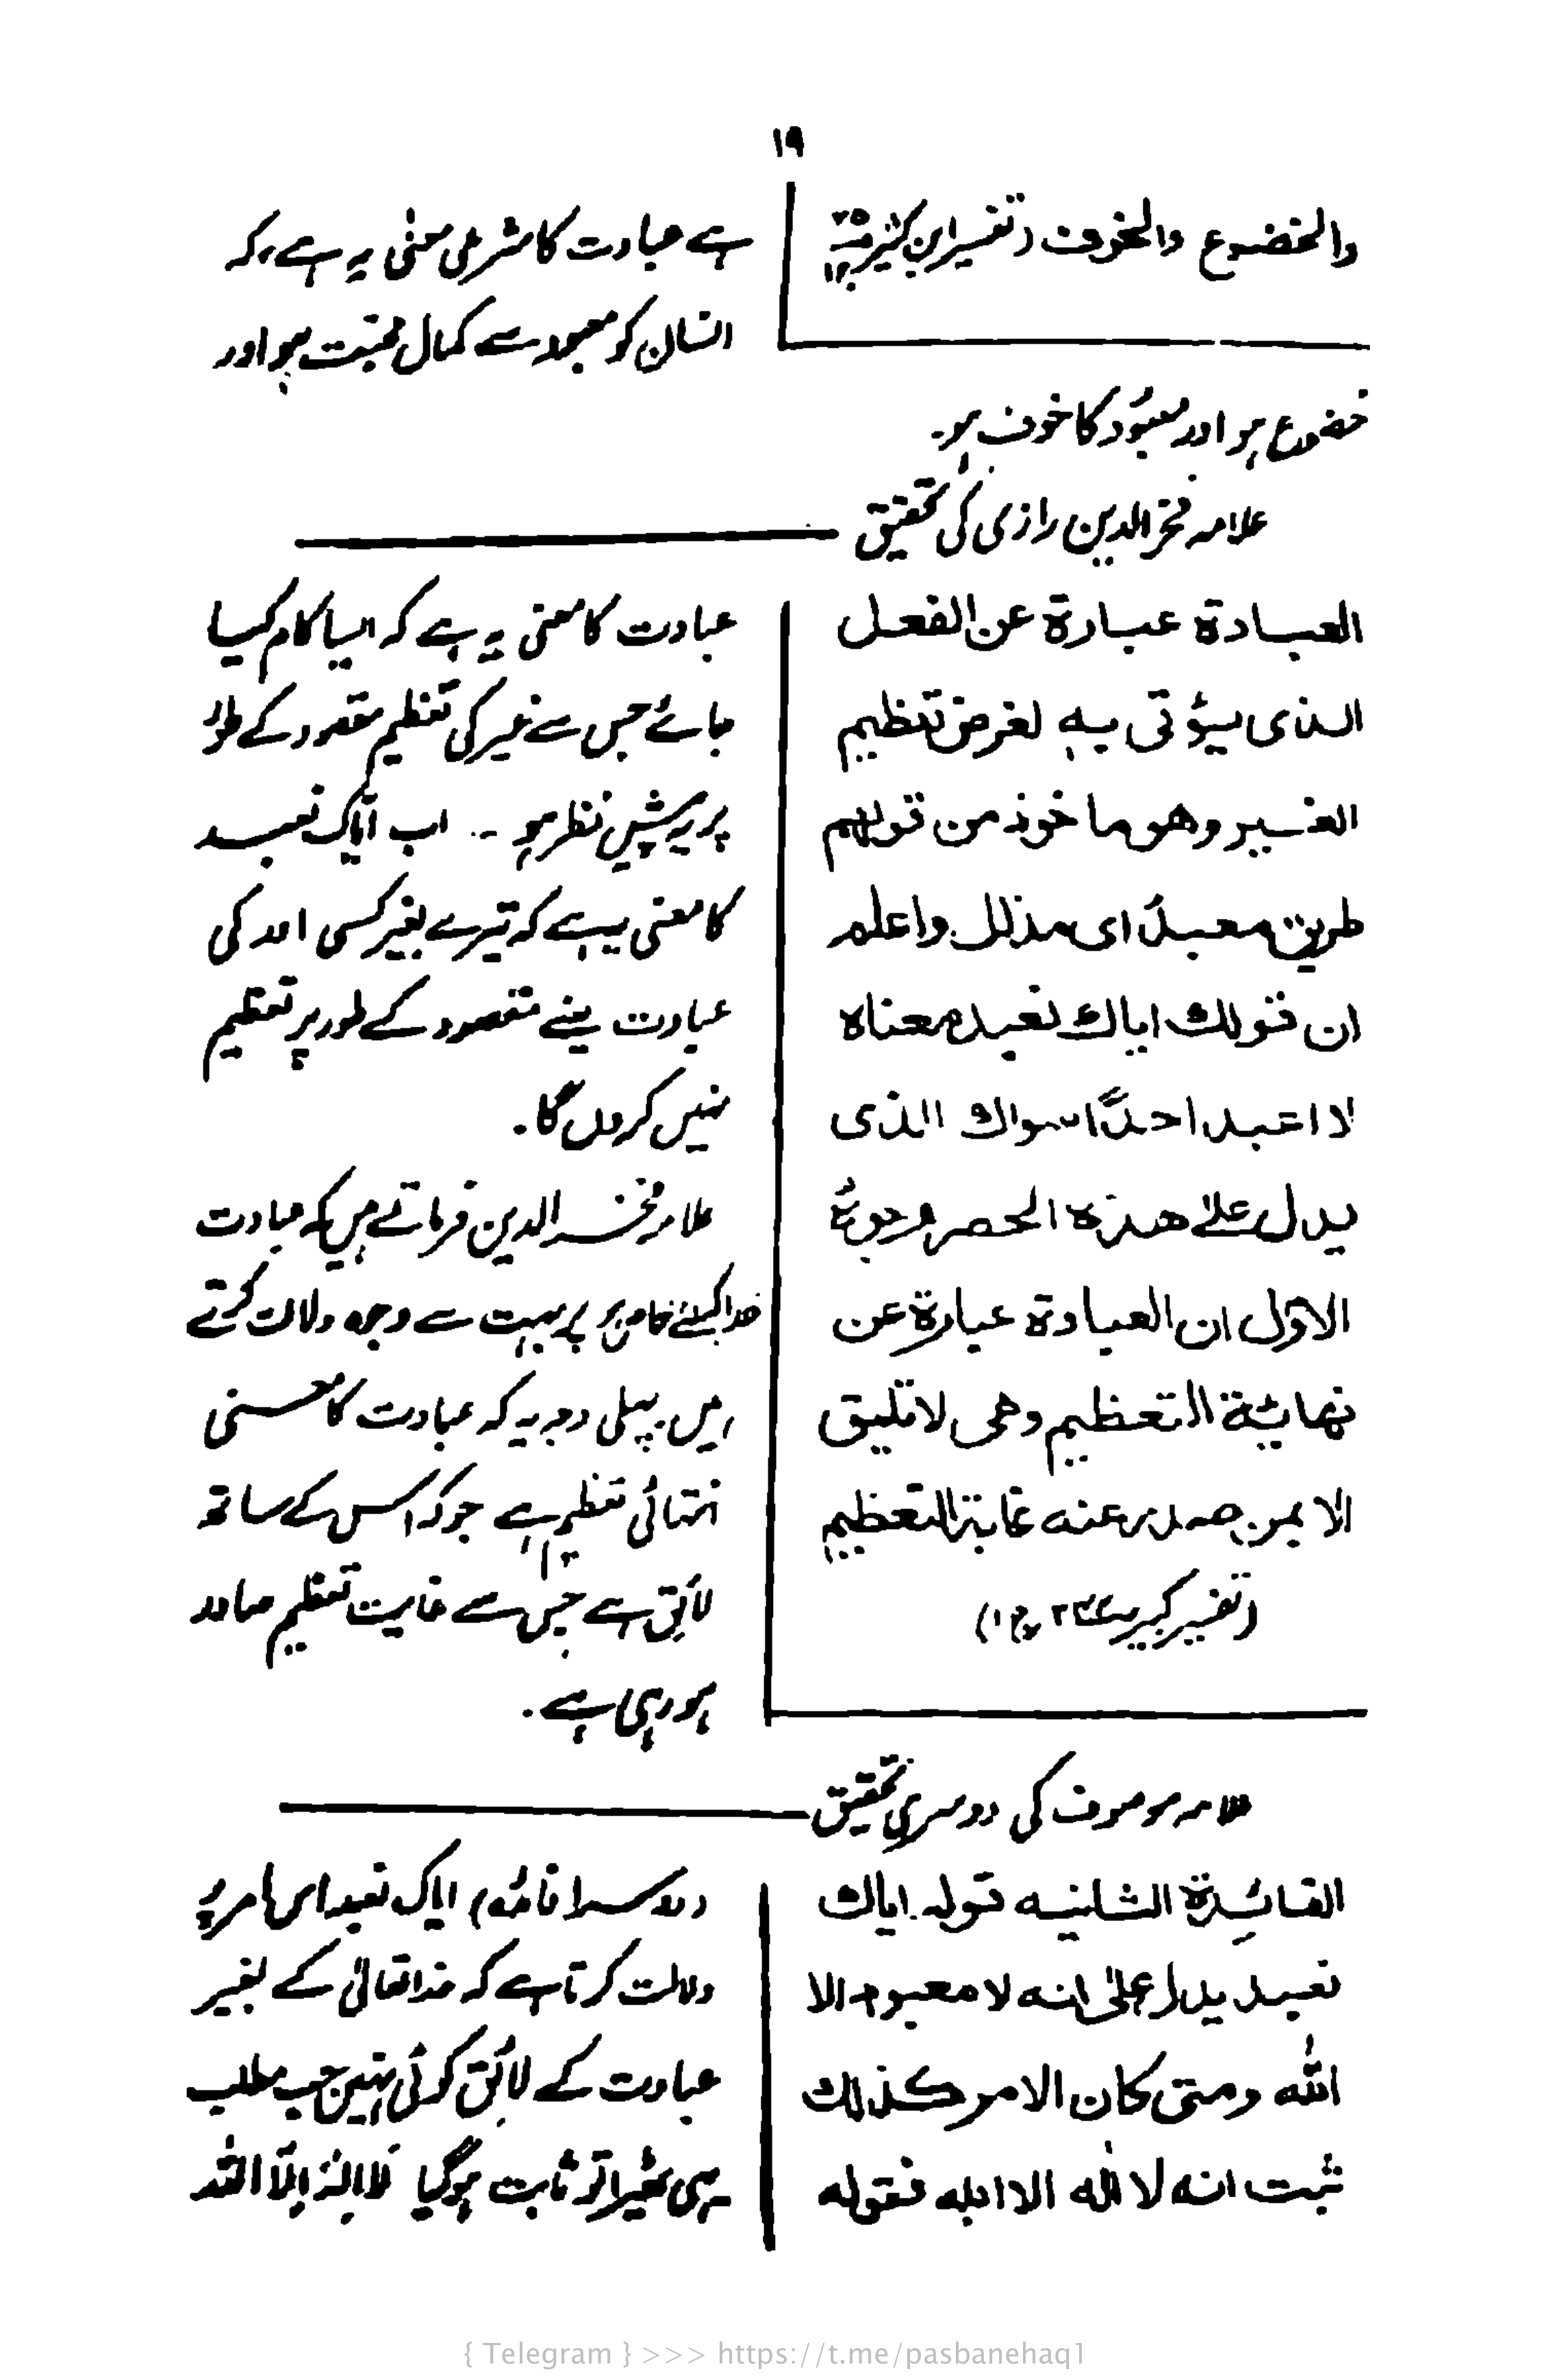 ۱۹
والخضوع والخوف (تفسیر ابن کثیر
ہے عبادت کا شرعی معنٰی یہ ہے، کہ
انسان کو معبود سے کمال محبّت ہو اور
خضوع ہو اور معبُود کا خوف ہو۔
علامہ فخر الدین رازی کی تحقیق
العبادة عبارة عن الفعل
الذی یؤتی به لغرض تعظیم
الغیر وهو ماخوذ من قولهم
طریق معبدٌ ای مذلل. واعلم
ان قولك ایاك نعبد معناه
لا اعبد احدًا سواك الذی
یدل علٰے هذه الحصر وجوهٌ
الاوّل ان العبادة عبارة عن
نهایة التعظیم وهی لا تلیق
الا بمن صدر عنه غایة التعظیم
(تفسیر کبیر ج۱)
عبادت کا معنی یہ ہے کہ ایسا کام کیا
جائے جس سے غیر کی تعظیم مقصود کے طور
پر پیش نظر ہو ۔۔ اب ایّاک نعبد
کا معنی یہ ہے کہ تیرے بغیر کسی اور کی
عبادت یعنے مقصود کے طور پر تعظیم
نہیں کروں گا۔
علامہ فخر الدین فرماتے ہیں کہ عبادت
خدا کیلئے خاص ہے پر بہت سے وجوہ دلالت کرتے
ہیں۔ پہلی وجہ یہ کہ عبادت کا معنی
انتہائی تعظیم ہے جو کہ اس کے ساتھ
لائق ہے جس سے غایت تعظیم صادر
ہو رہی ہے۔
علامہ موصوف کی دوسری تحقیق
الفائدة الثانیه قوله. ایاك
نعبد یدل علیٰ انه لا معبود الا
الله ومتی کان الامر کذالك
ثبت انه لا اله الا الله فقوله
(دوسرا فائدہ) ایاک نعبد اس امر پر
دلالت کرتا ہے کہ خدا تعالیٰ کے بغیر
عبادت کے لائق کوئی نہیں جب مطلب
یہی ٹھیرا تو ثابت ہوگیا لَا اِلٰہَ اِلَّا اللّٰہ
{ Telegram } >>> https://t.me/pasbanehaq1